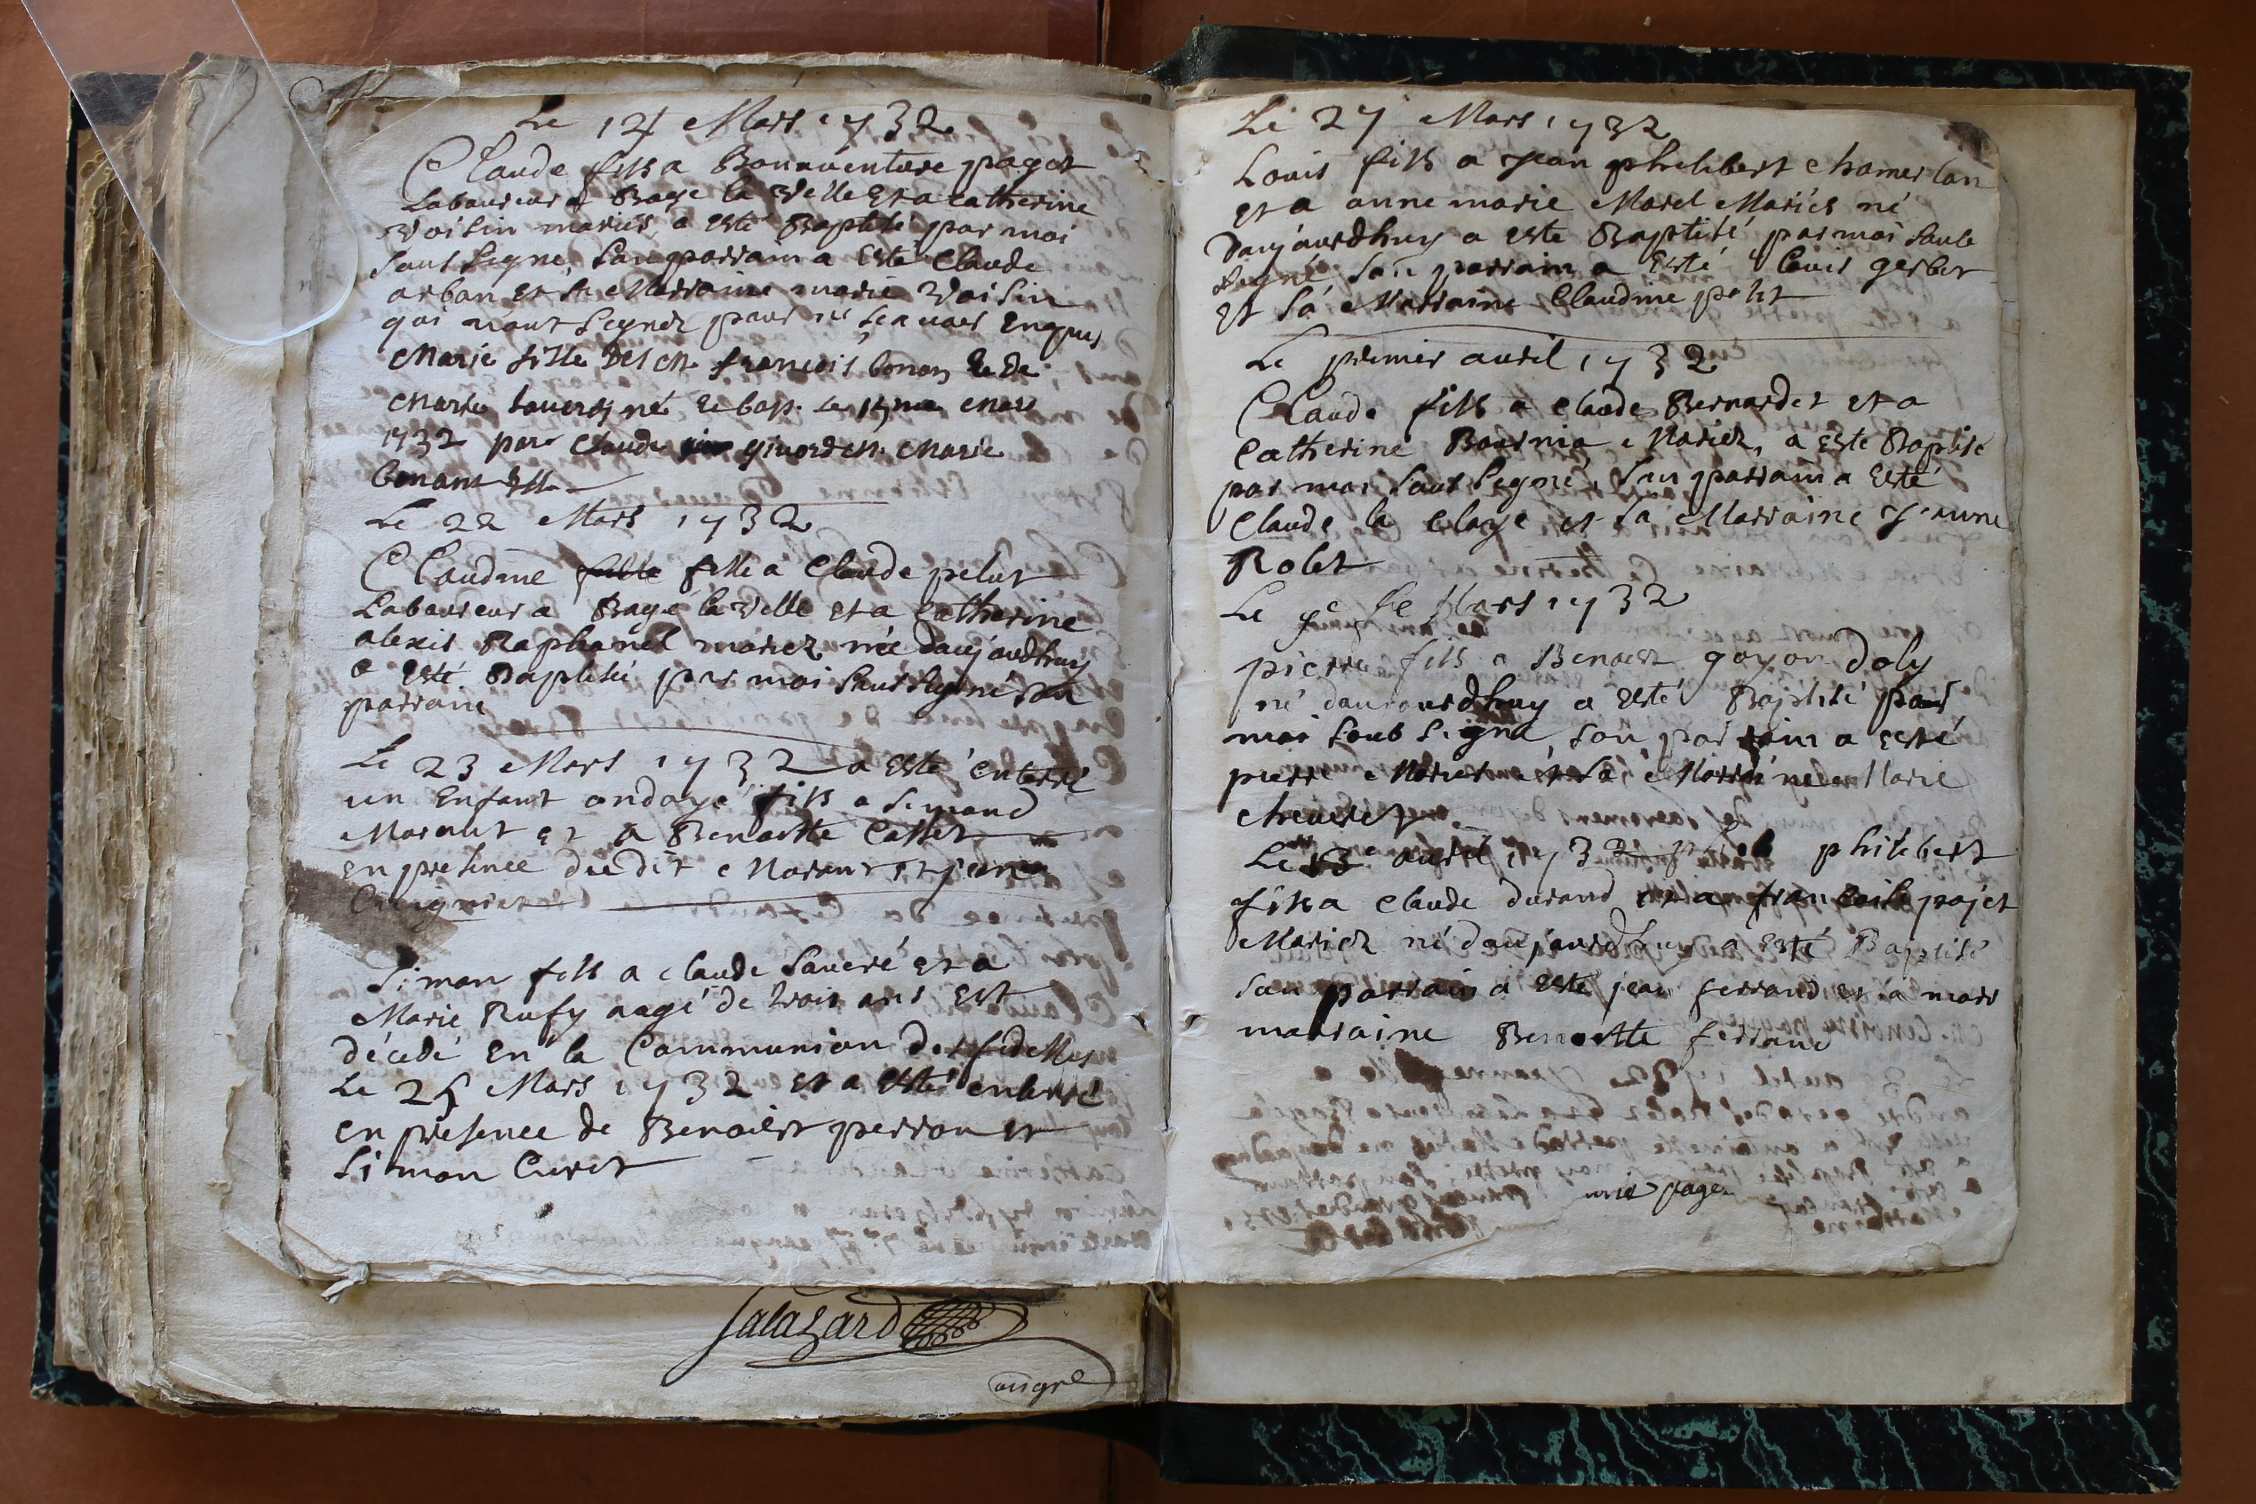 Le 14 Mars 1732
Claude fils a Bonaventure paget
Laboureur a Bage la ville et a catherine
Voisin mariés, a esté Baptisé par moi
sous signé, son parrain a esté Claude
arban et sa Marraine marie Voisin
qui n'ont signez pour ne scavoir enquis
Marie fille françois bonan et de
Marie né et bap. le Mars
1732 par Claude Marie
bonan
Le 22 Mars 1732
Claudine fille fille a Claude pelut
Laboureur a Bagé la ville et a catherine
alexis Raphanel mariez née daujourdhuy
a esté Baptisé par moi soussigné son
parrain
Le 23 Mars 1732 a esté enterré
un Enfant ondoyé fils a Simand
Morant et a Benoitte Cattet
en presence du dit Morant et
Simon fils a claude saveré et a
Marie Rufy aagé de trois ans est
décedé en la Communion des fidelles
Le 25 Mars 1732 et a esté enterré
en presence de Benoist perron et
Simon Curet
salazard
Le 27 Mars 1732
Louis fils a Jean philibert chamerlan
et a anne marie Morel Mariés né
daujourdhuy a este Baptisé par moi soub
signé son parrain a esté Louis gerbet
et sa Marraine Claudine petit
Le premier avril 1732
Claude fils a claude Bernardet et a
Catherine Bournia Mariez, a este Baptisé
par moi sous signé, son parrain a esté
Claude la claye et sa Marraine Jeanne
Robet
Le Mars 1732
pierre fils a Benoist goyon doly
né daujourdhuy a esté Baptisé par
moi soub signé, son parrain a esté
pierre et sa Marraine Marie
chevret
Le 13e avril 1732 philibert
fils a claude durand et a francoise pajet
Mariez né daujourdhuy a esté Baptisé
son parrain a esté jean ferrand et a marr
marraine Benoitte ferrand
page